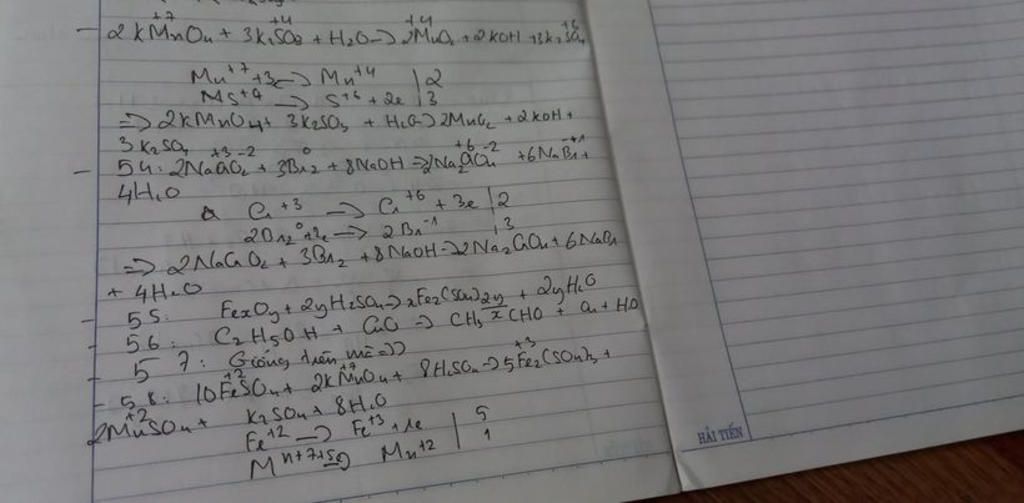 - 2KMnO4 + 3K2SO3 + H2O → 2MnO2 + 2KOH + 3K2SO4
+7 +4 +4 +6
Mn+7 + 3e → Mn+4 | 2
S+4 → S+6 + 2e | 3
=> 2KMnO4 + 3K2SO3 + H2O → 2MnO2 + 2KOH +
3K2SO4
- 54: 2NaCrO2 + 3Br2 + 8NaOH → 2Na2CrO4 + 6NaBr +
+3 -2 0 +6 -2 -1
4H2O
Cr+3 → Cr+6 + 3e | 2
Br2 0 + 2e → 2Br-1 | 3
=> 2NaCrO2 + 3Br2 + 8NaOH → 2Na2CrO4 + 6NaBr
+ 4H2O
- 55: FexOy + 2yH2SO4 → xFe2(SO4)2y/x + 2yH2O
- 56: C2H5OH + CuO → CH3CHO + Cu + H2O
- 57: Giống trên mà =))
- 58: 10FeSO4 + 2KMnO4 + 8H2SO4 → 5Fe2(SO4)3 +
+2 +7 +3
2MnSO4 + K2SO4 + 8H2O
+2
Fe+2 → Fe+3 + 1e | 5
Mn+7 + 5e → Mn+2 | 1
HẢI TIẾN